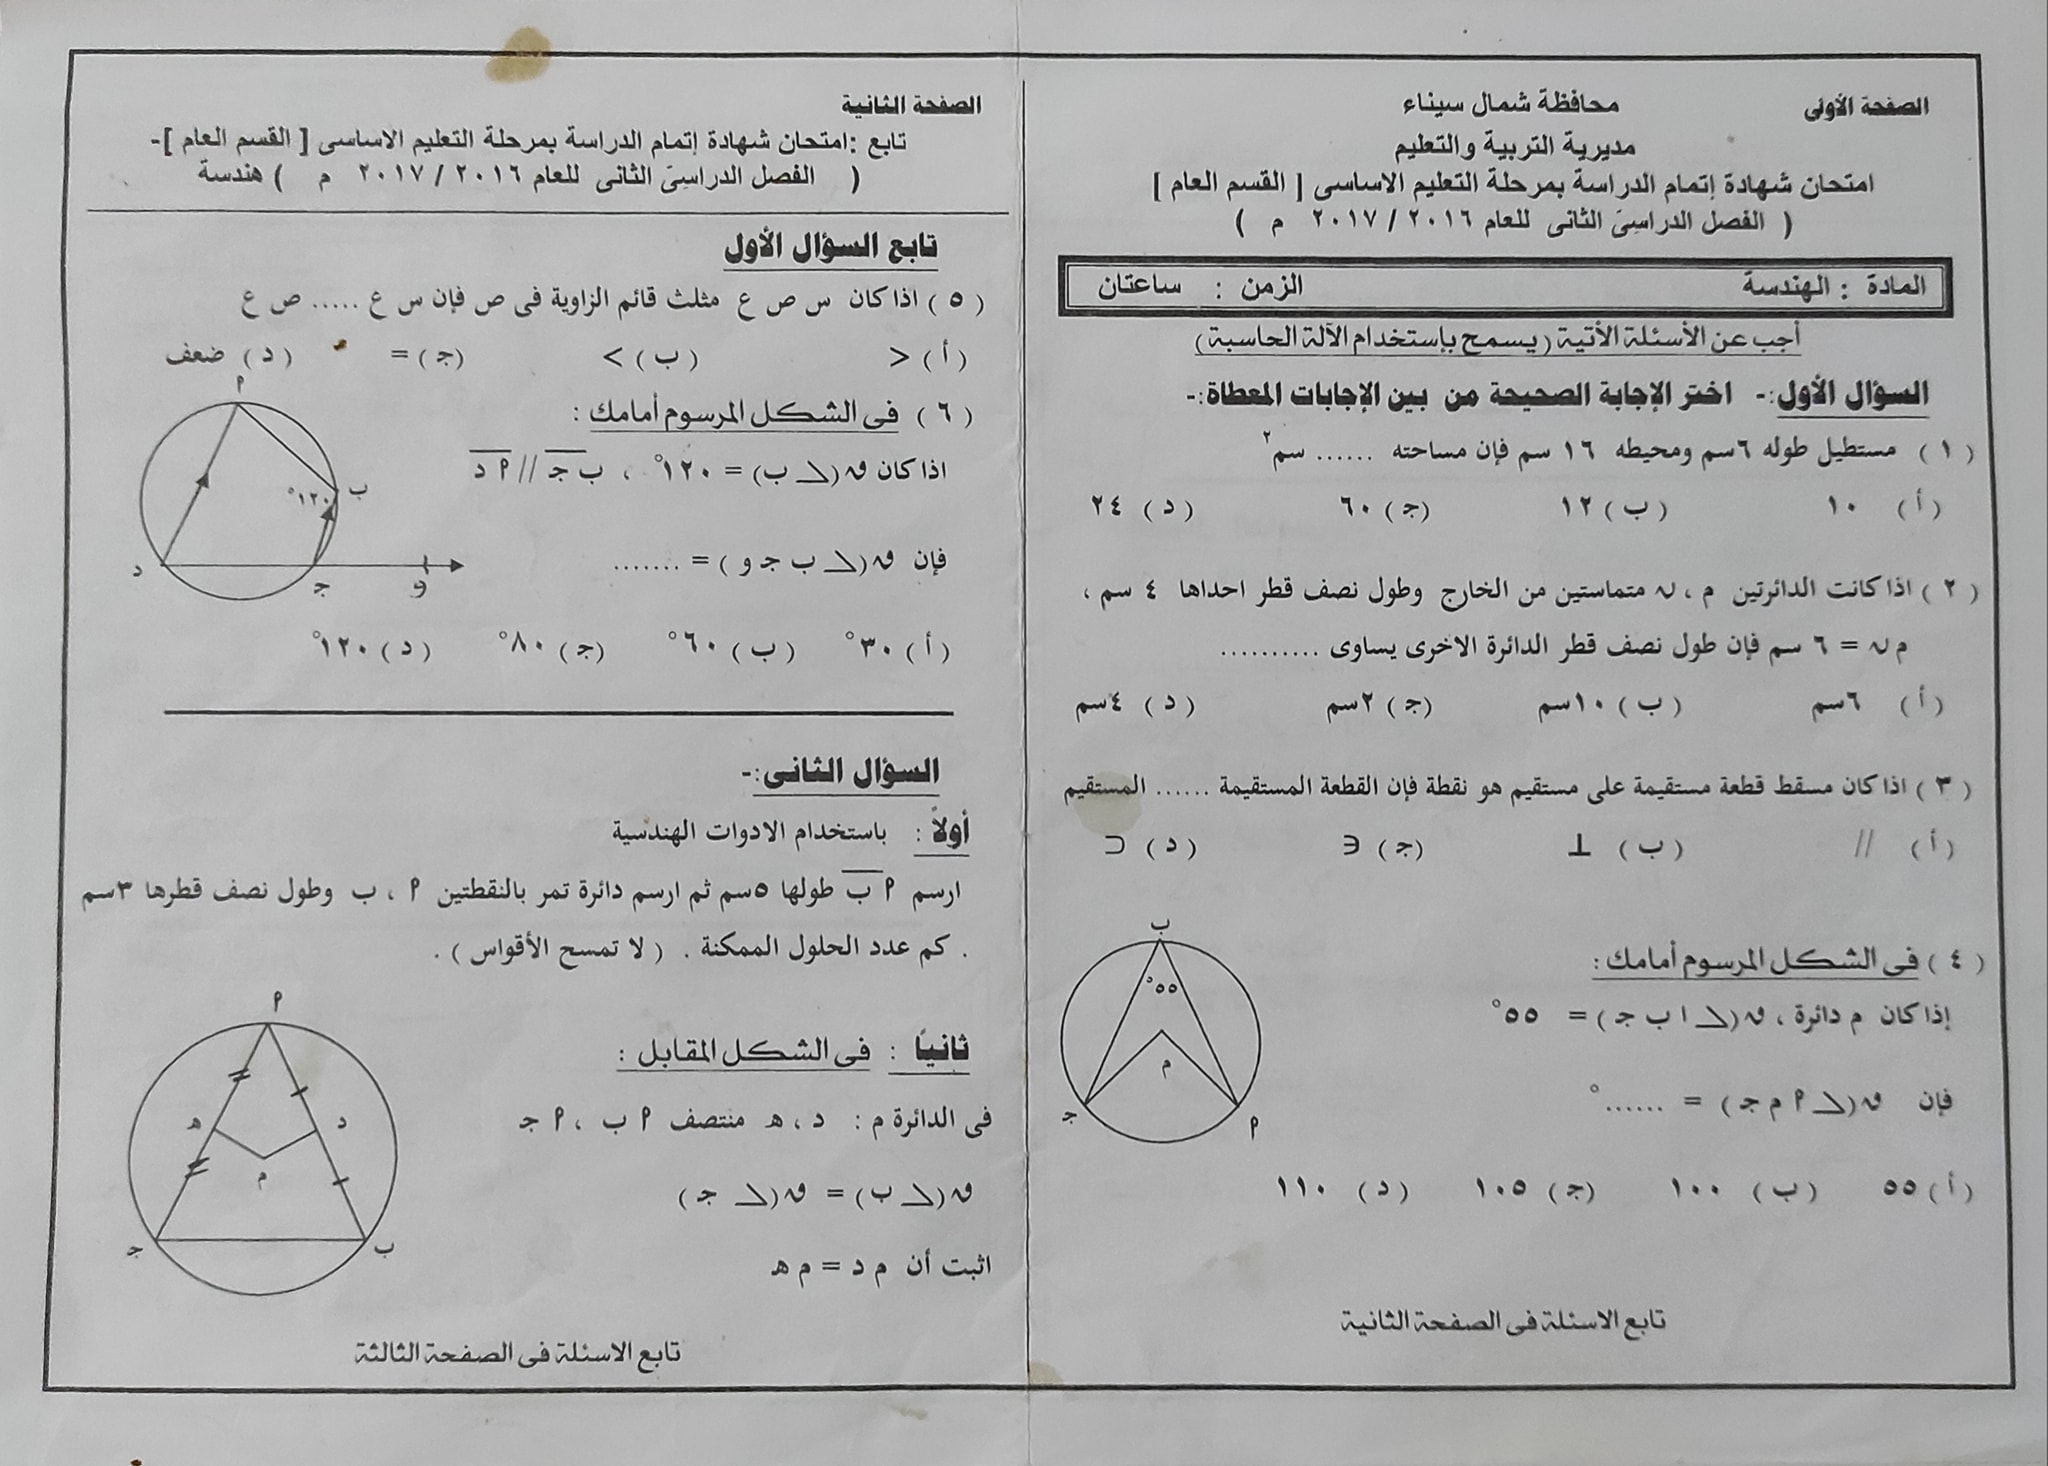 الصفحة الأولى
محافظة شمال سيناء
مديرية التربية والتعليم
امتحان شهادة إتمام الدراسة بمرحلة التعليم الاساسى [ القسم العام ]
( الفصل الدراسىَ الثانى للعام ٢٠١٦ / ٢٠١٧ م )
المادة : الهندسة الزمن : ساعتان
أجب عن الأسئلة الأتية ( يسمح بإستخدام الآلة الحاسبة )
السؤال الأول :- اختر الإجابة الصحيحة من بين الإجابات المعطاة:-
( ١ ) مستطيل طوله ٦سم ومحيطه ١٦ سم فإن مساحته ...... سم٢
( أ ) ١٠ ( ب ) ١٢ ( جـ ) ٦٠ ( د ) ٢٤
( ٢ ) اذا كانت الدائرتين م ، ن متماستين من الخارج وطول نصف قطر احداها ٤ سم ،
م ن = ٦ سم فإن طول نصف قطر الدائرة الاخرى يساوى ..........
( أ ) ٦سم ( ب ) ١٠سم ( جـ ) ٢سم ( د ) ٤سم
( ٣ ) اذا كان مسقط قطعة مستقيمة على مستقيم هو نقطة فإن القطعة المستقيمة ...... المستقيم
( أ ) // ( ب ) ⊥ ( جـ ) ∋ ( د ) ⊃
( ٤ ) فى الشكل المرسوم أمامك :
إذا كان م دائرة ، ق(ﮮ ا ب جـ ) = ٥٥°
فإن ق(ﮮ ٢ م جـ ) = ......°
( أ ) ٥٥ ( ب ) ١٠٠ ( جـ ) ١٠٥ ( د ) ١١٠
ب
٥٥°
م
جـ
٢
تابع الاسئلة فى الصفحة الثانية
الصفحة الثانية
تابع :امتحان شهادة إتمام الدراسة بمرحلة التعليم الاساسى [ القسم العام ]-
( الفصل الدراسىَ الثانى للعام ٢٠١٦ / ٢٠١٧ م ) هندسة
تابع السؤال الأول
( ٥ ) اذا كان س ص ع مثلث قائم الزاوية فى ص فإن س ع ..... ص ع
( أ ) < ( ب ) > ( جـ ) = ( د ) ضعف
( ٦ ) فى الشكل المرسوم أمامك :
اذا كان ق(ﮮ ب) = ١٢٠° ، ب جـ // ٢ د
فإن ق(ﮮ ب جـ و ) = .......
( أ ) ٣٠° ( ب ) ٦٠° ( جـ ) ٨٠° ( د ) ١٢٠°
٢
ب
١٢٠°
د
جـ
و
السؤال الثانى :-
أولاً : باستخدام الادوات الهندسية
ارسم ٢ ب طولها ٥سم ثم ارسم دائرة تمر بالنقطتين ٢ ، ب وطول نصف قطرها ٣سم
. كم عدد الحلول الممكنة . ( لا تمسح الأقواس ) .
ثانياً : فى الشكل المقابل :
فى الدائرة م : د ، هـ منتصف ٢ ب ، ٢ جـ
ق(ﮮ ب) = ق(ﮮ جـ )
اثبت أن م د = م هـ
٢
هـ
د
م
جـ
ب
تابع الاسئلة فى الصفحة الثالثة